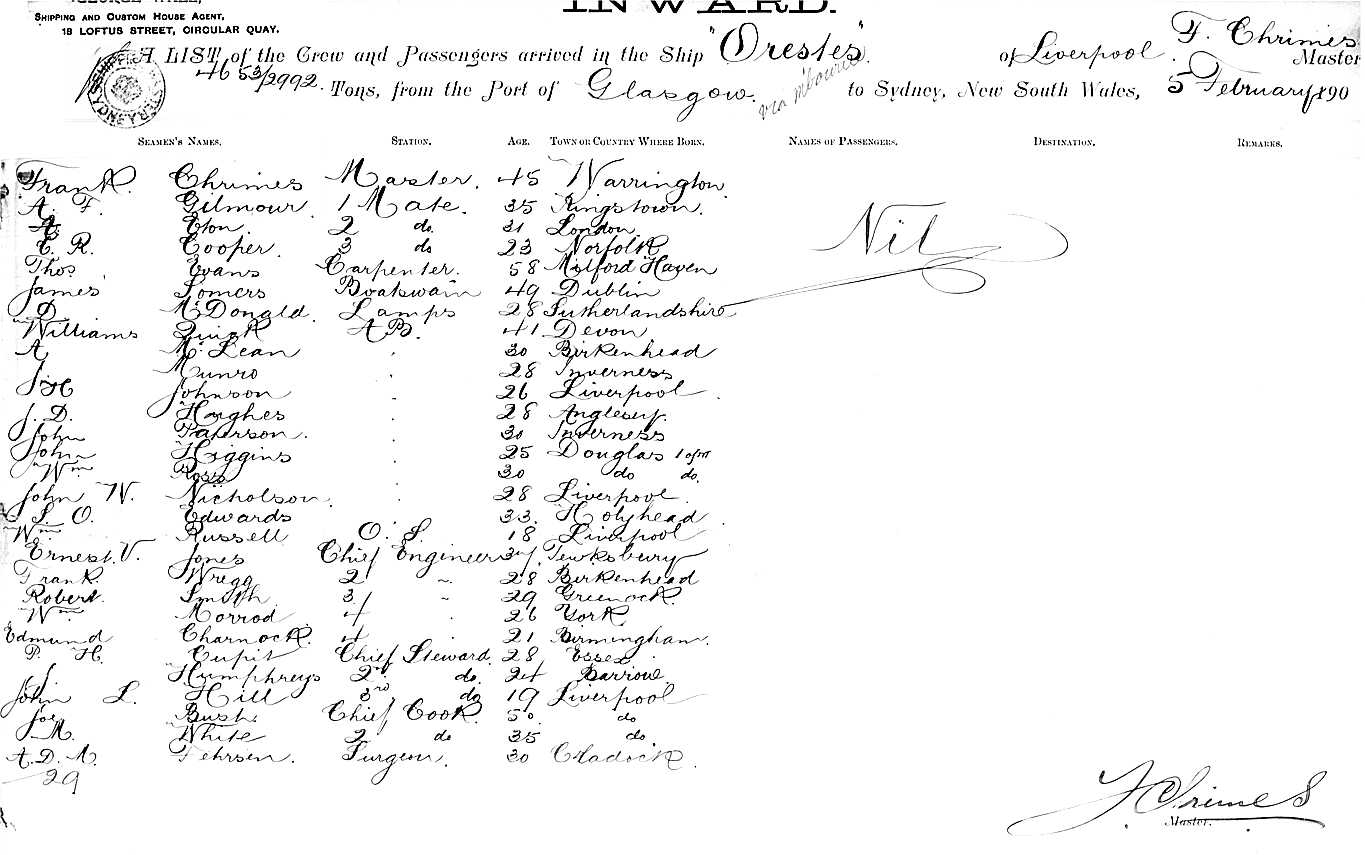 INWARD.
SHIPPING AND CUSTOM HOUSE AGENT,
19 LOFTUS STREET, CIRCULAR QUAY.
A LIST of the Crew and Passengers arrived in the Ship "Orestes" of Liverpool F. Chrimes Master
4653/2992. Tons, from the Port of Glasgow. via Mbourne to Sydney, New South Wales, 5 February 190
SEAMEN'S NAMES. STATION. AGE. TOWN OR COUNTRY WHERE BORN. NAMES OF PASSENGERS. DESTINATION. REMARKS.
Frank Chrimes Master. 45 Warrington
A. F. Gilmour 1 Mate. 35 Kingstown.
Eton 2 do. 31 London
C. R. Cooper. 3 do 23 Norfolk
Nil
Thos Evans Carpenter. 58 Milford Haven
James Somers Boatswain 49 Dublin
D. McDonald. Lamps 28 Sutherlandshire
Williams Quirk A B. 41 Devon
A McLean 30 Birkenhead
Munro 28 Inverness
J H Johnson 26 Liverpool
J. D. Hughes 28 Anglesey.
John Paterson. 30 Inverness
John Higgins 25 Douglas I of M
Wm Ross 30 do do.
John W. Nicholson. 28 Liverpool
S. O. Edwards 33. Holyhead
Wm Russell O. S. 18 Liverpool
Ernest. V. Jones Chief Engineer 37. Tewksbury
Frank. Wregg 2 " 28 Birkenhead
Robert. Smyth 3 " 29 Greenock.
Wm Morrod 4 26 York
Edmund Charnock. 4 21 Birmingham.
P. H. Cupit Chief Steward. 28 Essex
J. Humphreys 2nd do. 24 Barrow.
John L. Hill 3rd do 19 Liverpool
Joe Bush Chief Cook. 50. do
J. M. White 2 do 35 do.
A. D. M. Fehrsen. Surgeon. 30 Cradock.
29
F Chrimes
Master.